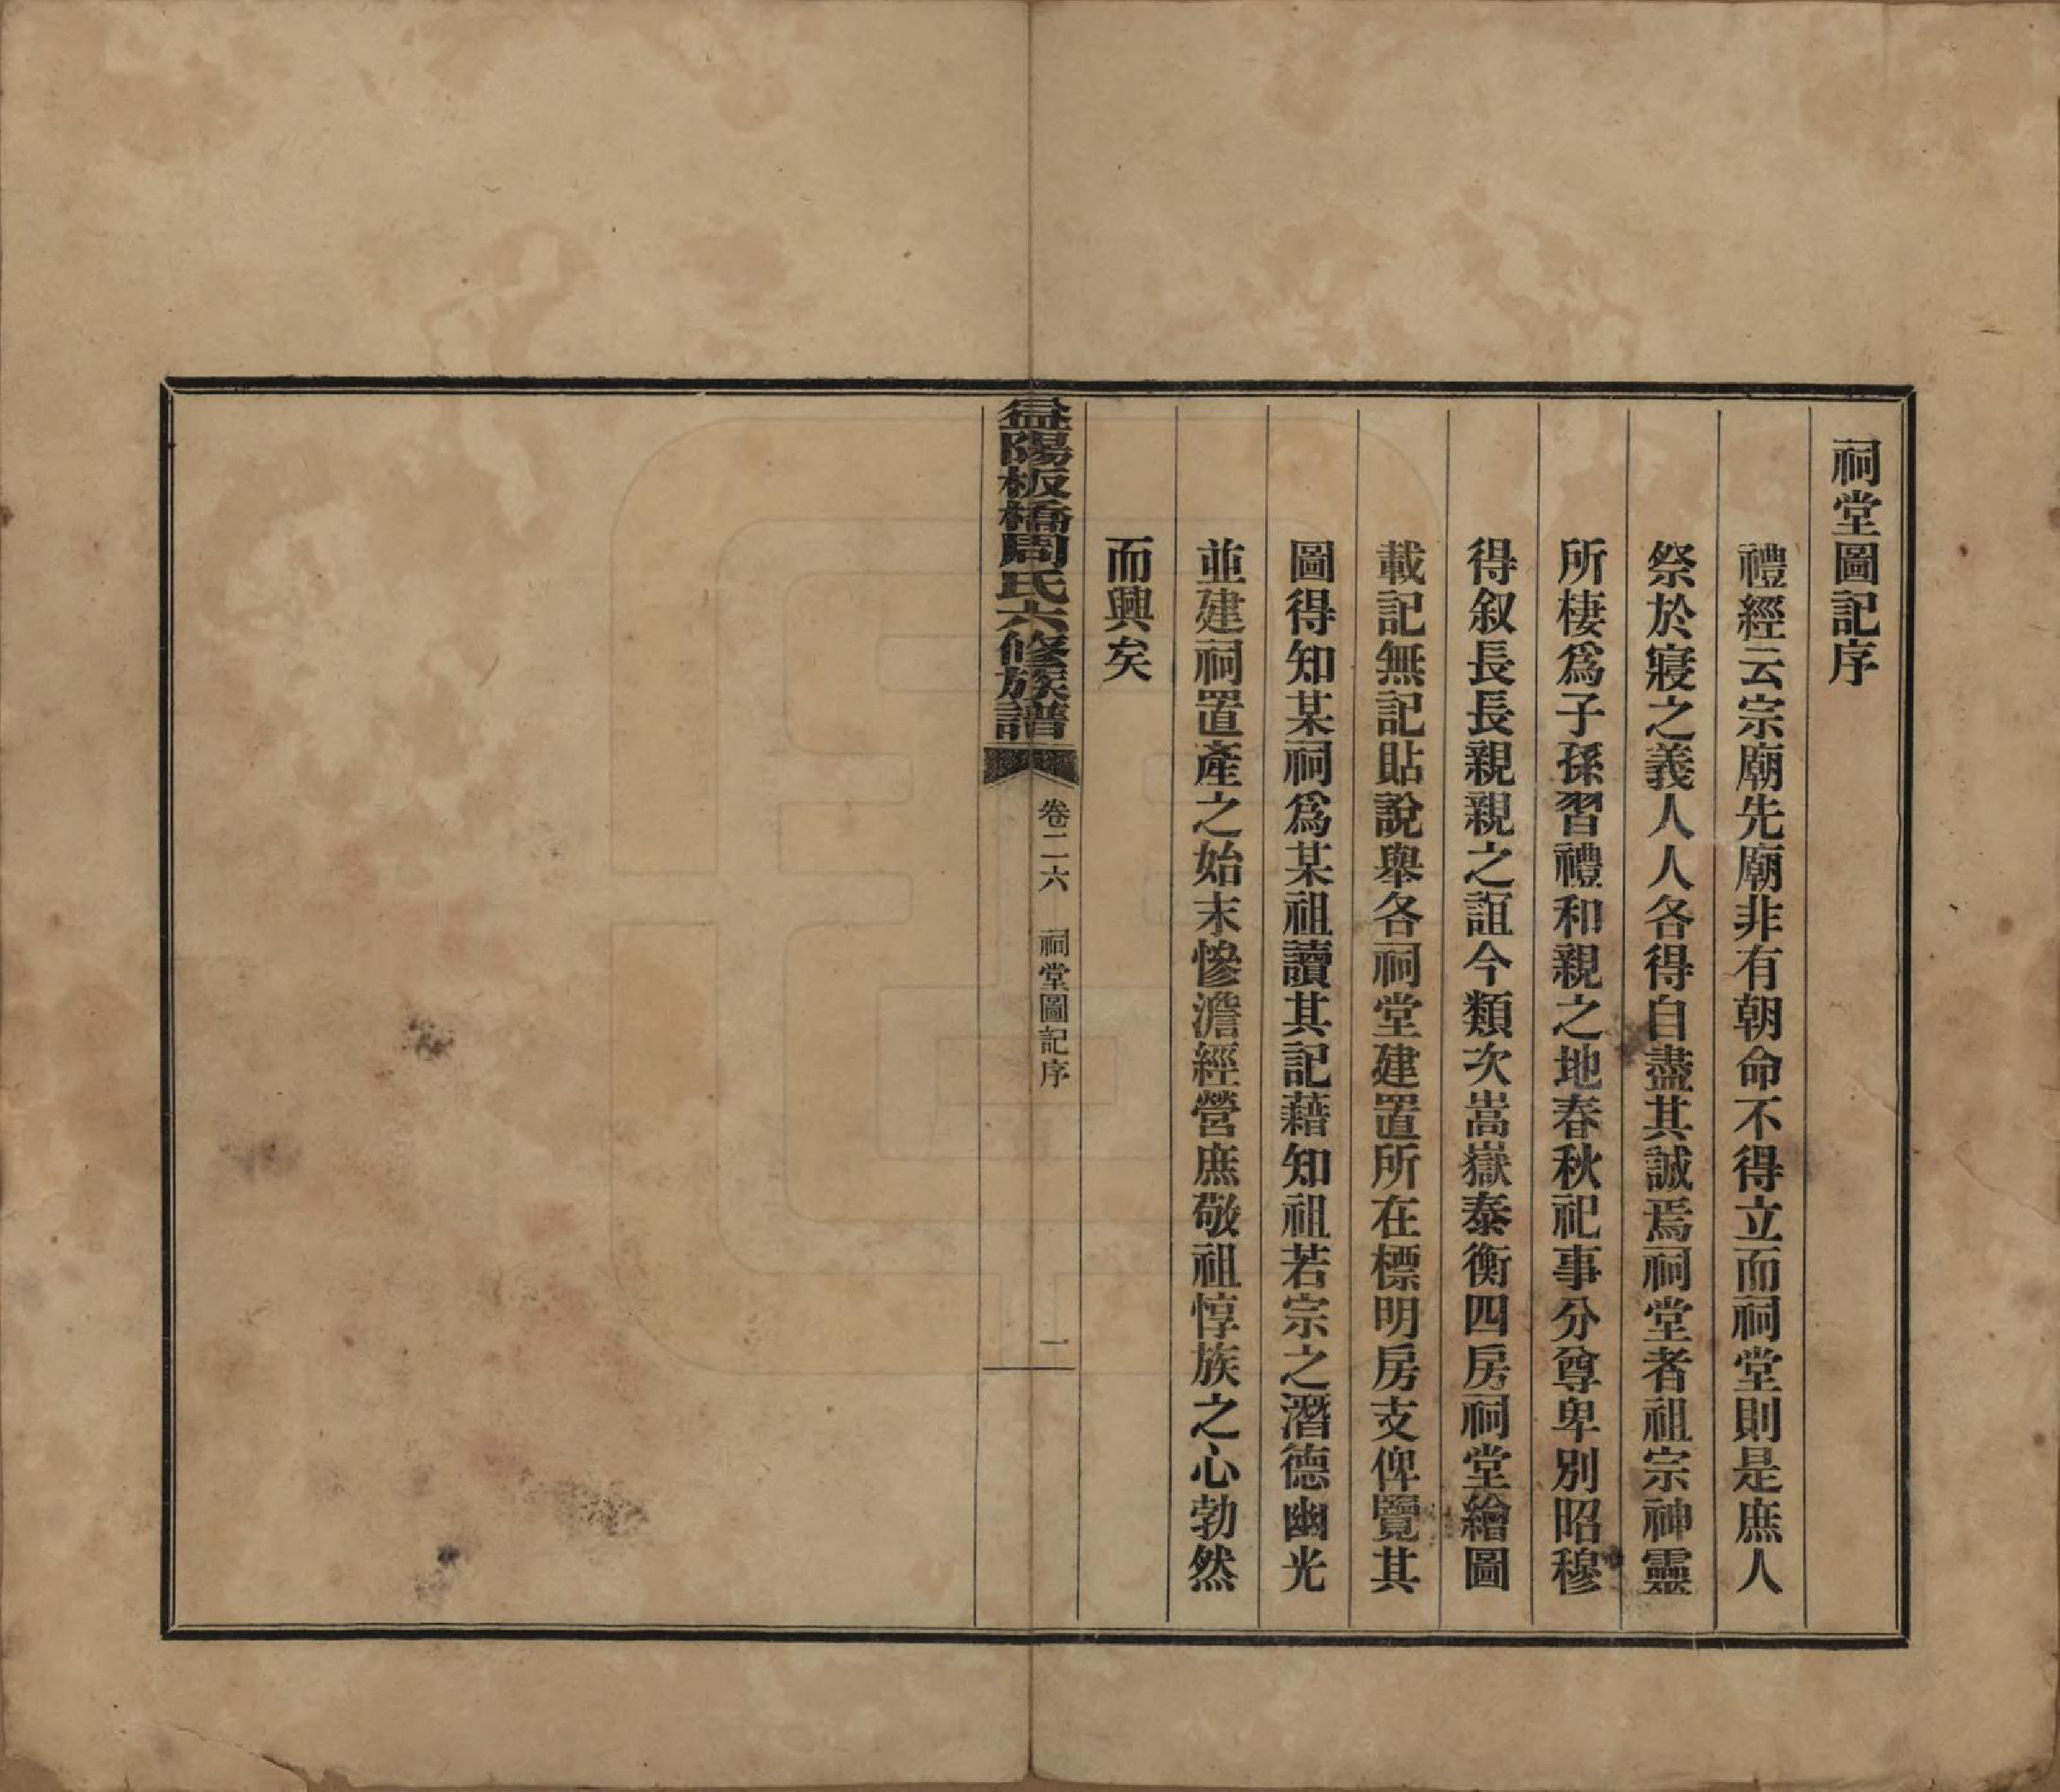 祠堂圖記序
禮經云宗廟先廟非有朝命不得立而祠堂則是庶人
祭於寢之義人人各得自盡其誠焉祠堂者祖宗神靈
所棲爲子孫習禮和親之地春秋祀事分尊卑別昭穆
得叙長長親親之誼今類次嵩嶽泰衡四房祠堂繪圖
載記無記貼說舉各祠堂建置所在標明房支俾覽其
圖得知某祠爲某祖讀其記藉知祖若宗之潛德幽光
並建祠置產之始末慘澹經營庶敬祖惇族之心勃然
而興矣
益陽板橋周氏六修族譜
卷二六 祠堂圖記序
一